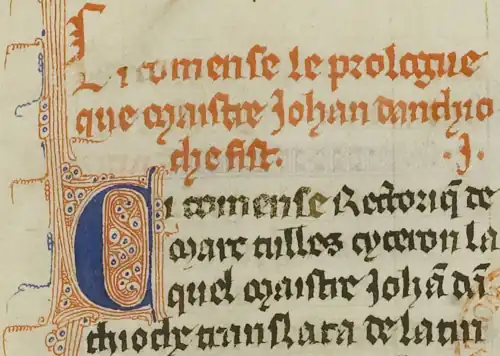 Ci comense le prologue
que maistre Johan danthio
che fist. .I.
Ci comense Rectoriq̄ de
marc tulles cyceron la
quel maistre Johā dā
thioche translata de latin